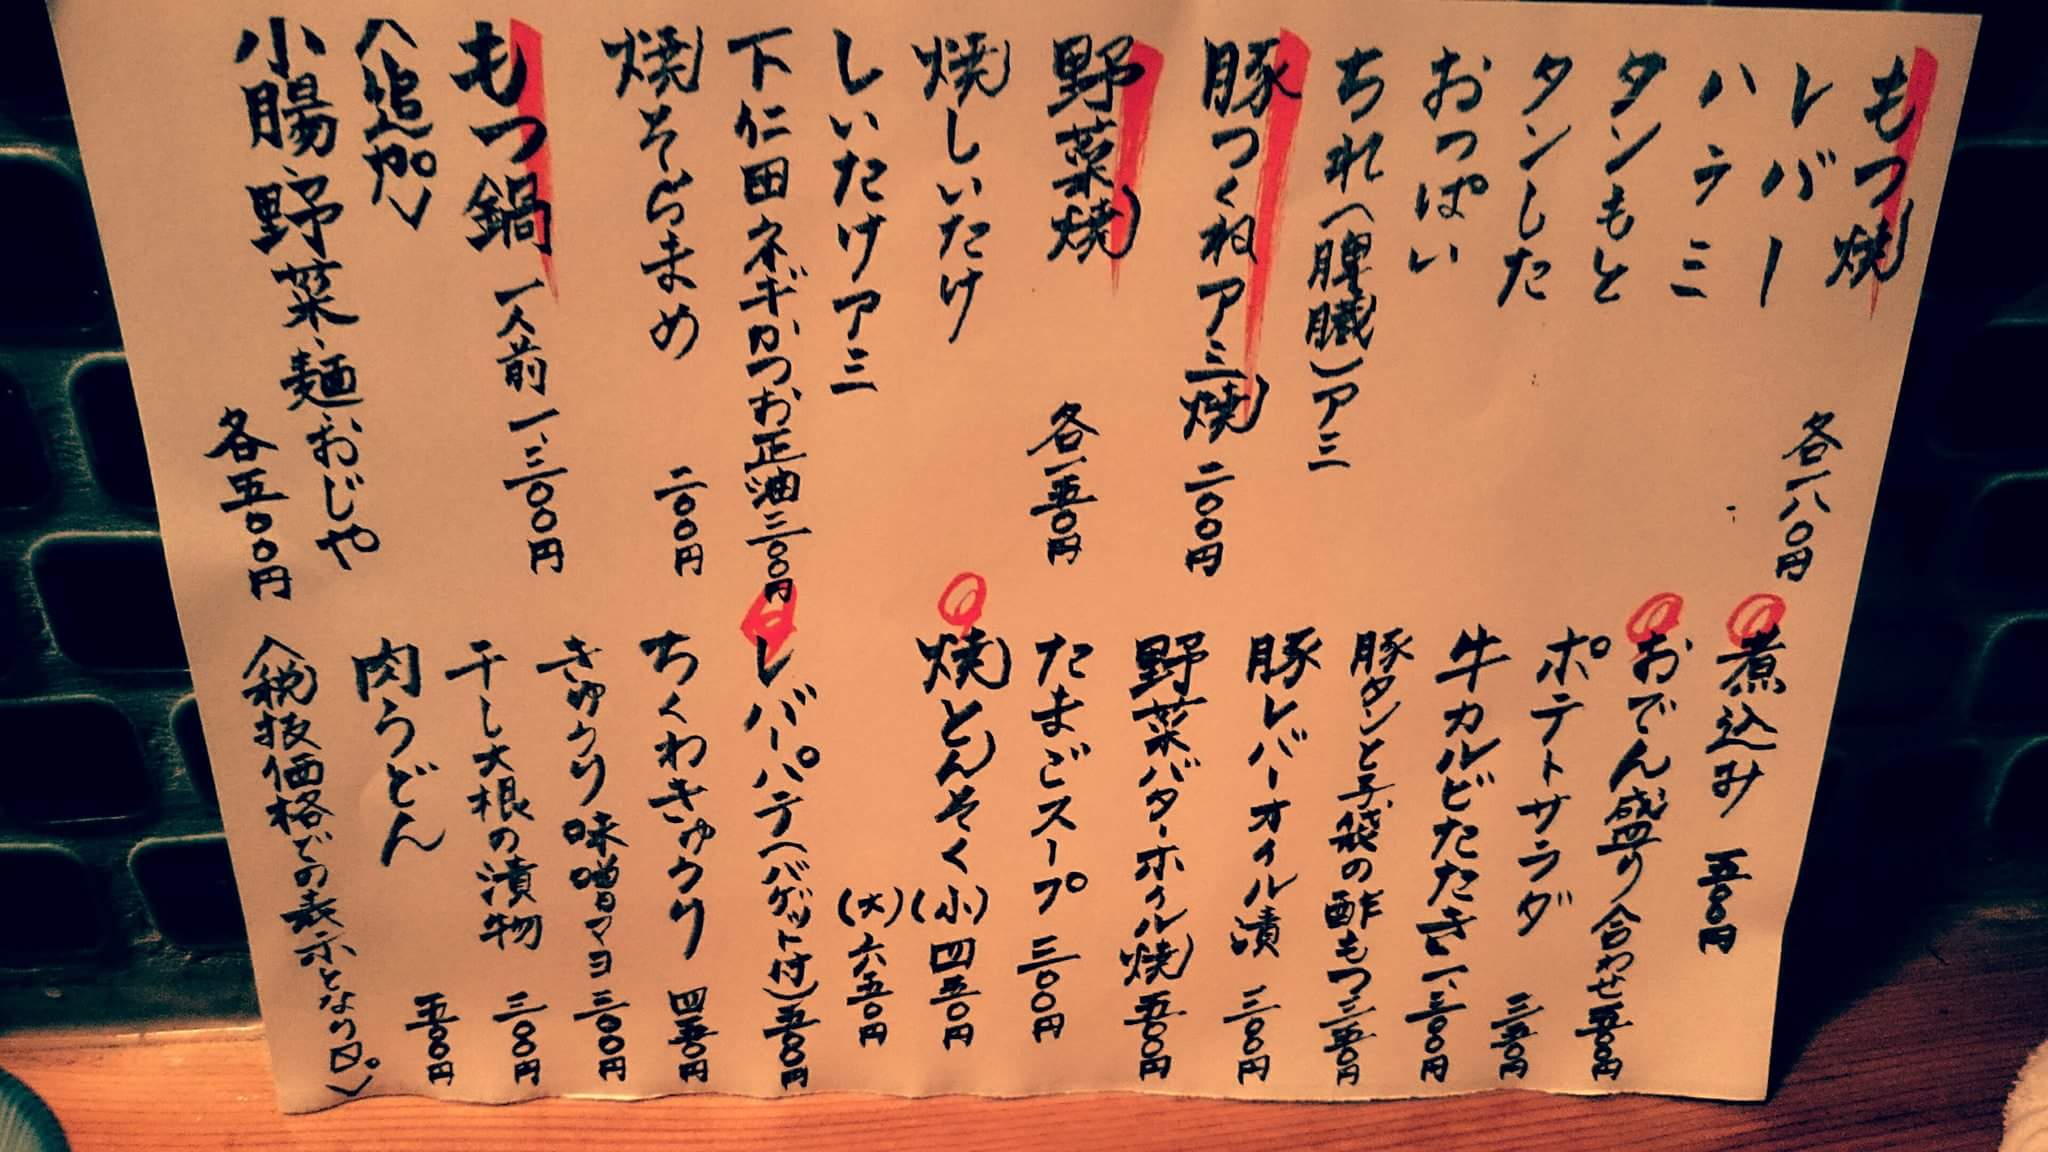 もつ焼 各一八〇円
レバー
ハラミ
タンもと
タンした
おっぱい
ちれ(脾臓)アミ
豚つくねアミ焼 二〇〇円
野菜焼 各一五〇円
焼しいたけ
しいたけアミ
下仁田ネギかつお正油 三〇〇円
焼そらまめ 二〇〇円
もつ鍋 一人前 一、三〇〇円
〈追加〉
小腸、野菜、麺、おじや
各五〇〇円
煮込み 五〇〇円
おでん盛り合わせ 五五〇円
ポテトサラダ 三五〇円
牛カルビたたき 一、三〇〇円
豚タンと子袋の酢もつ 三五〇円
豚レバーオイル漬 三〇〇円
野菜バターホイル焼 五〇〇円
たまごスープ 三〇〇円
焼とんそく (小) 四五〇円
(大) 六五〇円
レバーパテ(バゲット付) 五〇〇円
ちくわきゅうり 四五〇円
きゅうり味噌マヨ 三〇〇円
干し大根の漬物 三〇〇円
肉うどん 五〇〇円
〈税抜価格での表示となります。〉